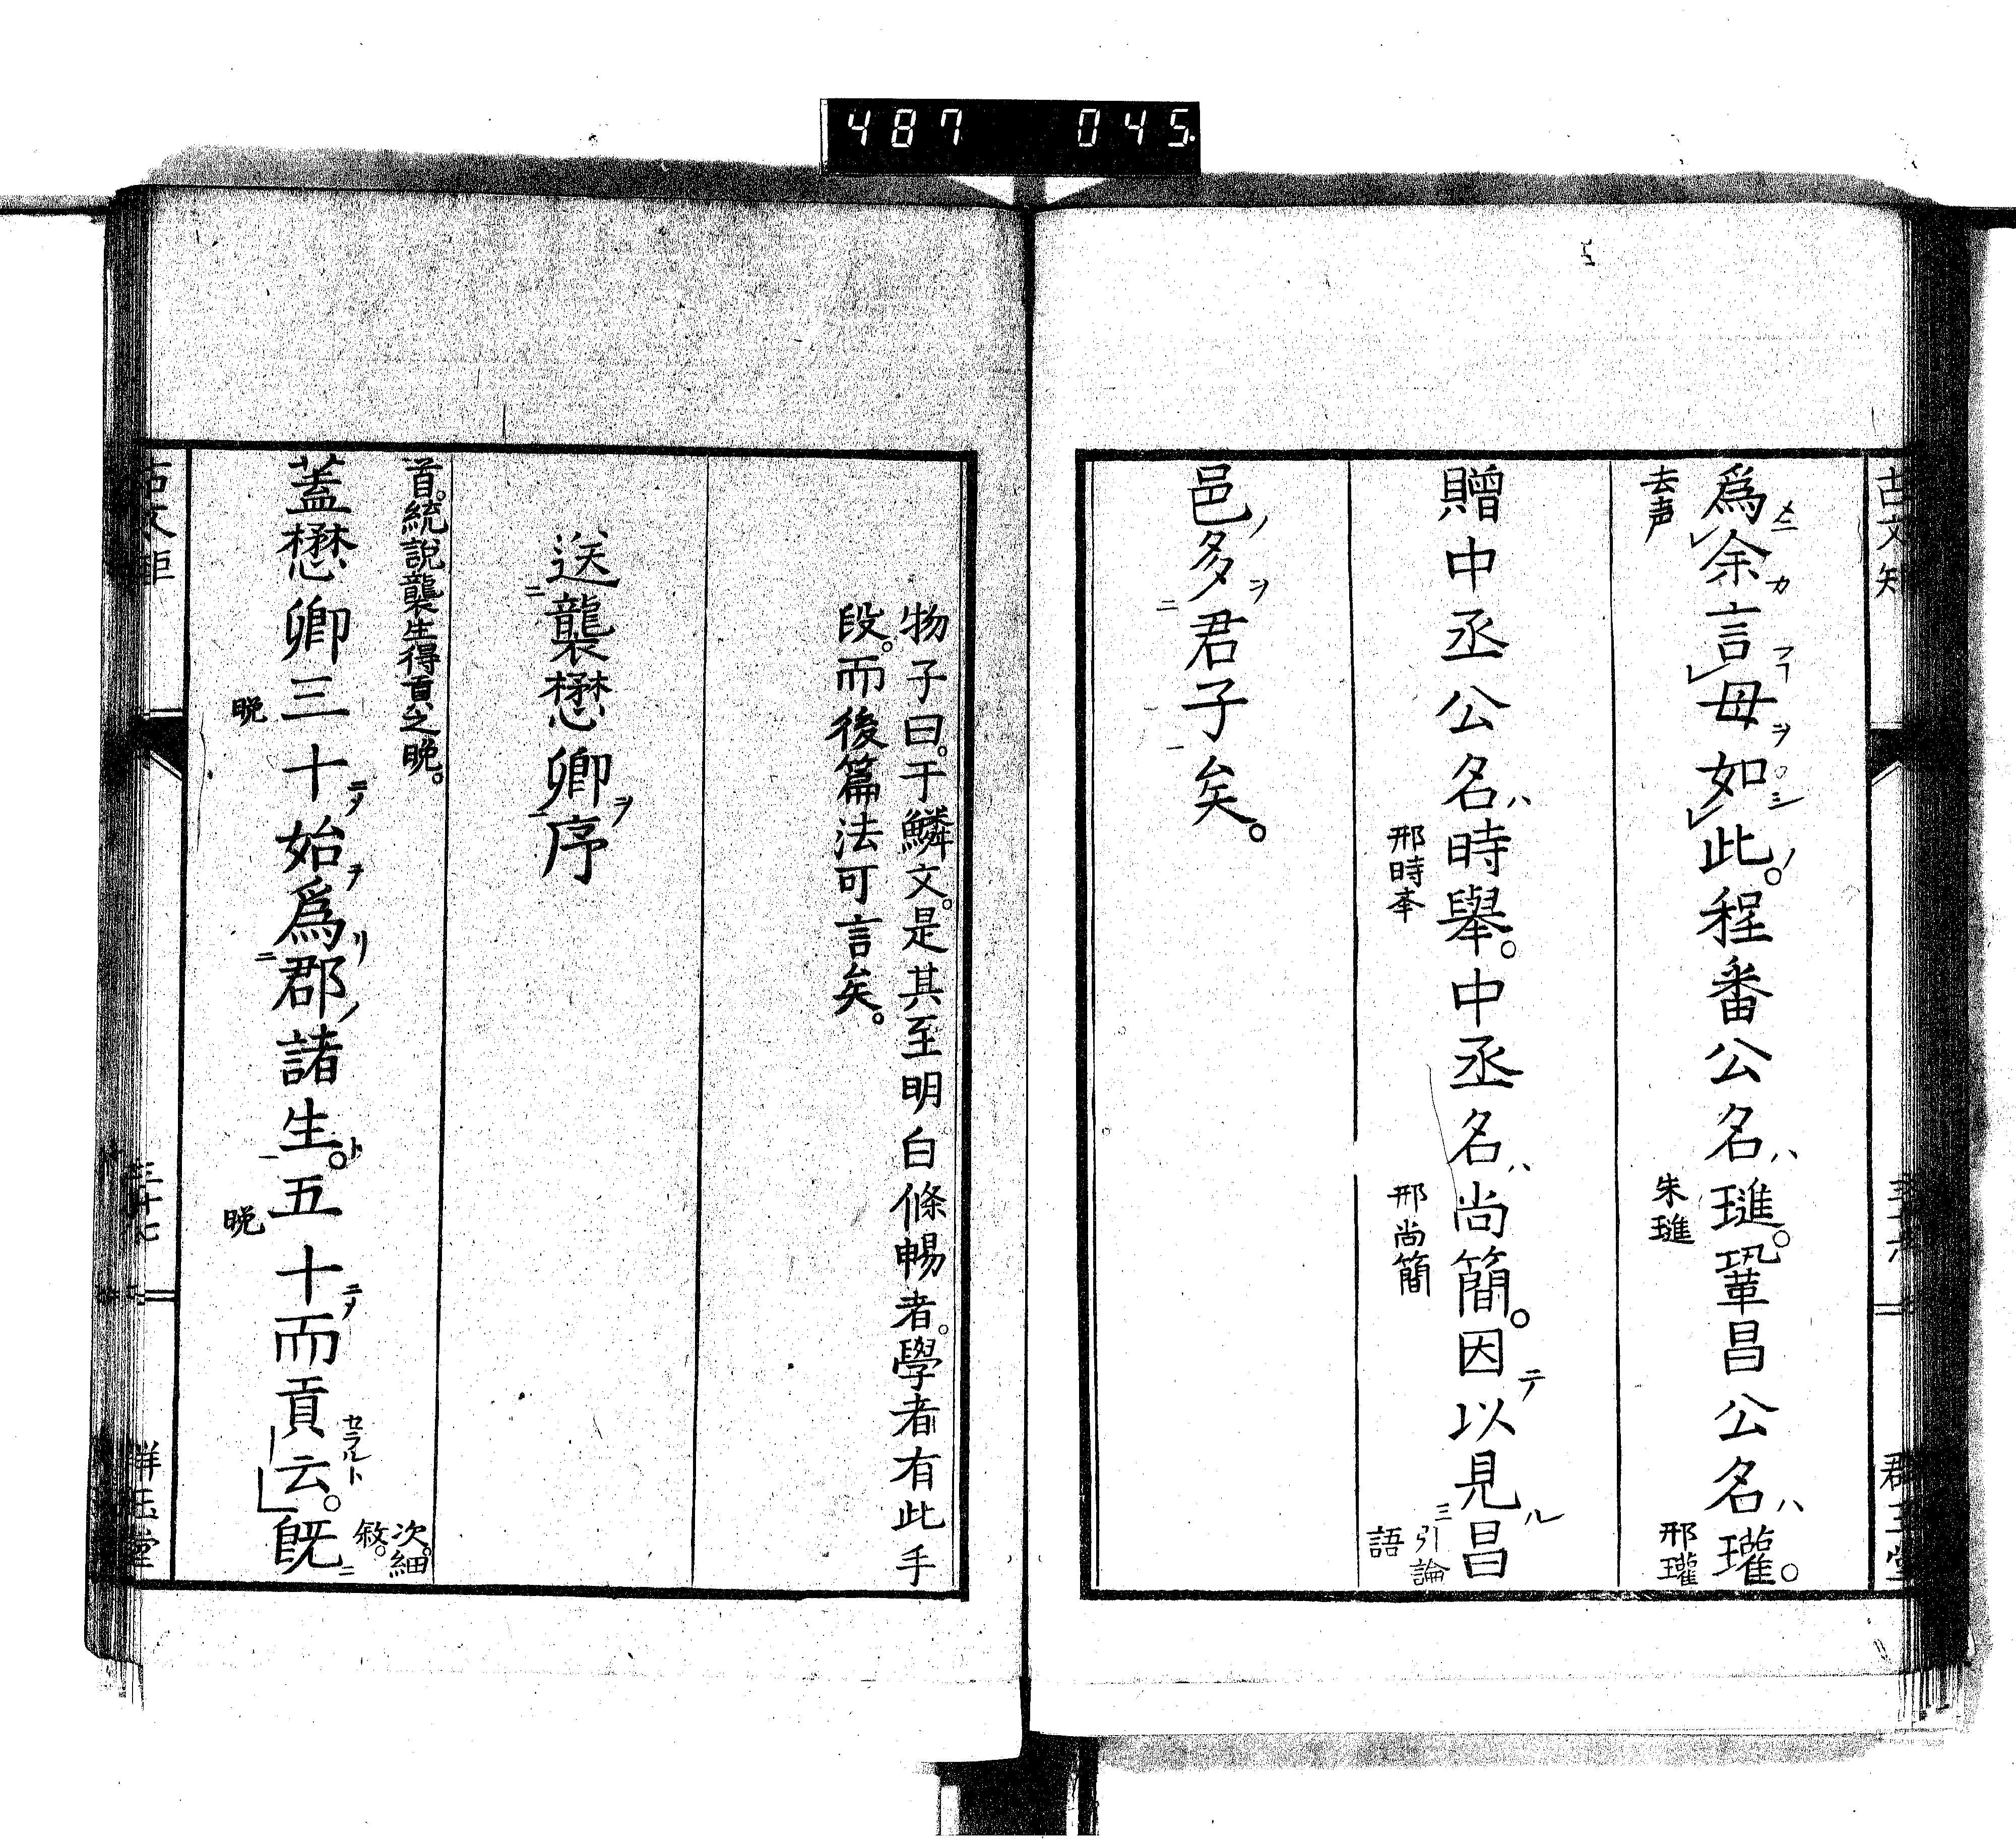 487 045
古文矩
爲余言毋如此。程番公名瑃。鞏昌公名瓘。
去声
朱瑃
邢瓘
贈中丞公名時舉。中丞名尚簡。因以見昌
邢時夲
邢尚簡
引論
語
邑多君子矣。
三十六
群玉堂
物子曰。于鱗文。是其至明白條暢者。學者有此手
段。而後篇法可言矣。
送襲懋卿序
首。統說襲生得貢之晩。
蓋懋卿三十始爲郡諸生。五十而貢云。旣
晩
晩
次。細
敘。
古文矩
三十七
群玉堂